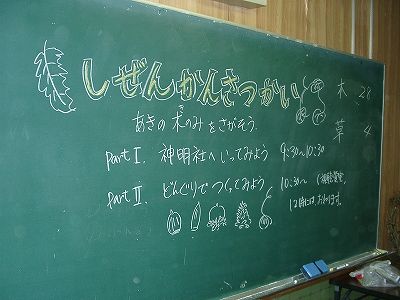 しぜんかんさつかい
あきの木のみをさがそう.
き
Part I. 神明社へいってみよう 9:30~10:30
Part II. どんぐりでつくってみよう 10:30~
12時には、おわります。
木 28
草 4